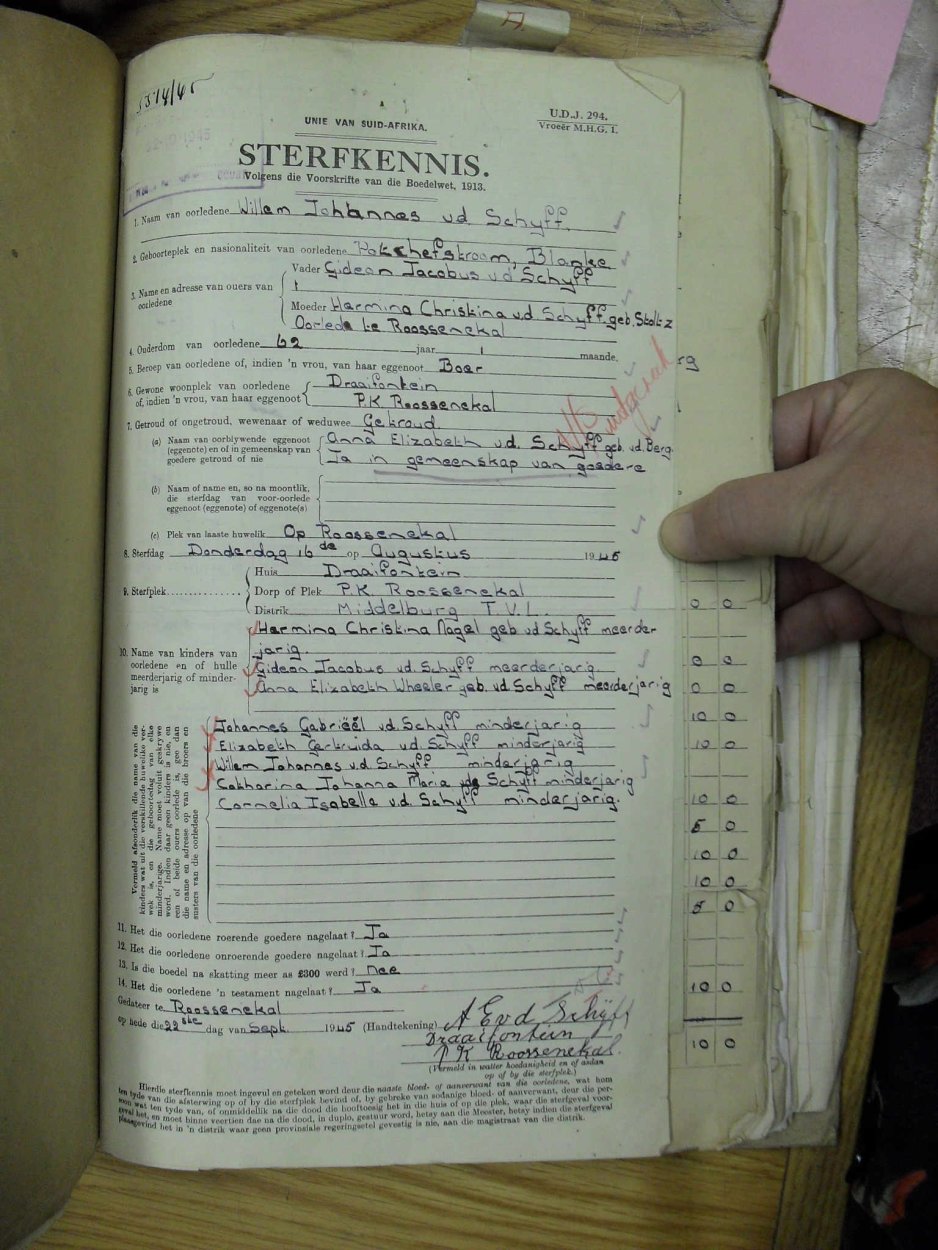 A.
5514/45
UNIE VAN SUID-AFRIKA.
U.D.J. 294.
Vroeër M.H.G. 1.
1945
STERFKENNIS.
Volgens die Voorskrifte van die Boedelwet, 1913.
1. Naam van oorledene Willem Johannes vd Schyff.
2. Geboorteplek en nasionaliteit van oorledene Potchefstroom, Blanke
3. Name en adresse van ouers van oorledene
Vader Gideon Jacobus vd Schyff
Moeder Hermina Christina v.d Schyff geb. Stoltz
Oorlede te Roossenekal
4. Ouderdom van oorledene 62 jaar 1 maande.
5. Beroep van oorledene of, indien 'n vrou, van haar eggenoot Boer
6. Gewone woonplek van oorledene of, indien 'n vrou, van haar eggenoot
Draaifontein
P.K Roossenekal
7. Getroud of ongetroud, wewenaar of weduwee Getroud
(a) Naam van oorblywende eggenoot (eggenote) en of in gemeenskap van goedere getroud of nie
Anna Elizabeth v.d. Schyff geb. vd. Berg.
Ja in gemeenskap van goedere
(b) Naam of name en, so na moontlik, die sterfdag van voor-oorlede eggenoot (eggenote) of eggenote(s)
(c) Plek van laaste huwelik Op Roossenekal
8. Sterfdag Donderdag 16de op Augustus 1945
9. Sterfplek
Huis Draaifontein
Dorp of Plek P.K Roossenekal
Distrik Middelburg T.V.L.
10. Name van kinders van oorledene en of hulle meerderjarig of minderjarig is
Hermina Christina Nagel geb vd Schyff meerder-
jarig.
Gideon Jacobus vd. Schyff meerderjarig.
Anna Elizabeth Wheeler geb. vd Schyff meerderjarig
Johannes Gabriëël vd Schyff minderjarig
Elizabeth Gertruida vd. Schyff minderjarig
Willem Johannes vd. Schyff minderjarig
Catharina Johanna Maria vd Schyff minderjarig
Cornelia Isabella v.d. Schyff minderjarig.
Vermeld afsonderlik die name van die kinders wat uit die verskillende huwelike verwek is, en die geboortedag van elke minderjarige. Name moet voluit geskrywe word. Indien daar geen kinders is nie, en een of beide ouers oorlede is, gee dan die name en adresse op van die broers en susters van die oorledene
11. Het die oorledene roerende goedere nagelaat? Ja
12. Het die oorledene onroerende goedere nagelaat? Ja
13. Is die boedel na skatting meer as £300 werd? nee
14. Het die oorledene 'n testament nagelaat? Ja
Gedateer te Roossenekal
op hede die 22ste dag van Sept. 1945 (Handtekening) A E vd Schijff
Draaifontein
P K Roossenekal.
(Vermeld in watter hoedanigheid en of asdan op of by die sterfplek.)
Hierdie sterfkennis moet ingevul en geteken word deur die naaste bloed- of aanverwant van die oorledene, wat hom
ten tyde van die afsterwing op of by die sterfplek bevind of, by gebreke van sodanige bloed- of aanverwant, deur die per-
soon wat ten tyde van, of onmiddellik na die dood die hooftoesig het in die huis of op die plek, waar die sterfgeval voor-
geval het, en moet binne veertien dae na die dood, in duplo, gestuur word, hetsy aan die Meester, hetsy indien die sterfgeval
plaasgevind het in 'n distrik waar geen provinsiale regeringsetel gevestig is nie, aan die magistraat van die distrik.
rg
0 0
0 0
0 0
10 0
10 0
10 0
5 0
10 0
10 0
5 0
10 0
10 0